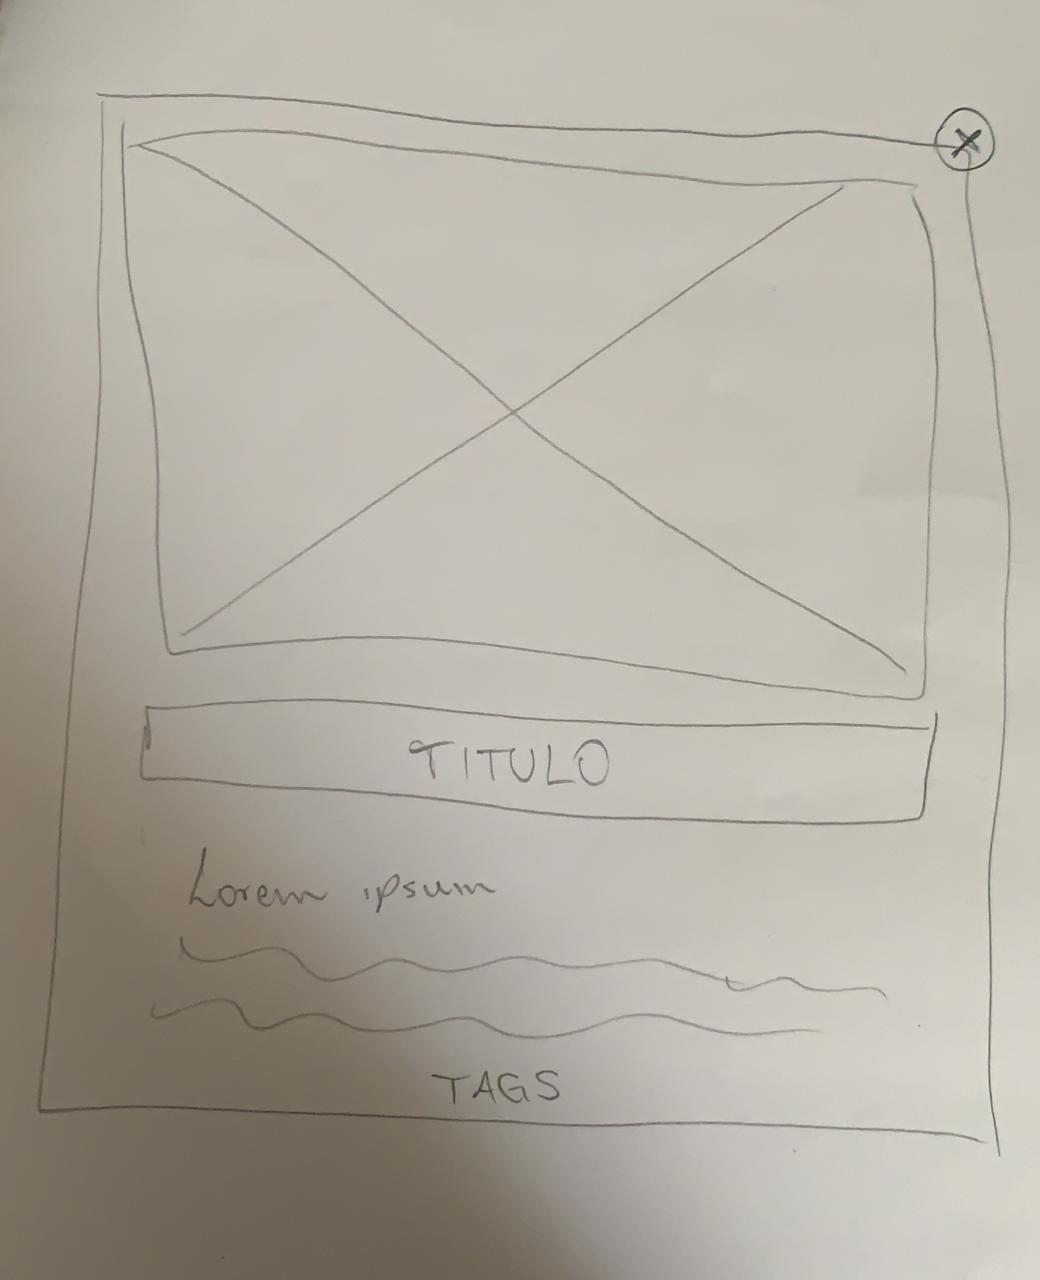 X
TITULO
Lorem ipsum
TAGS